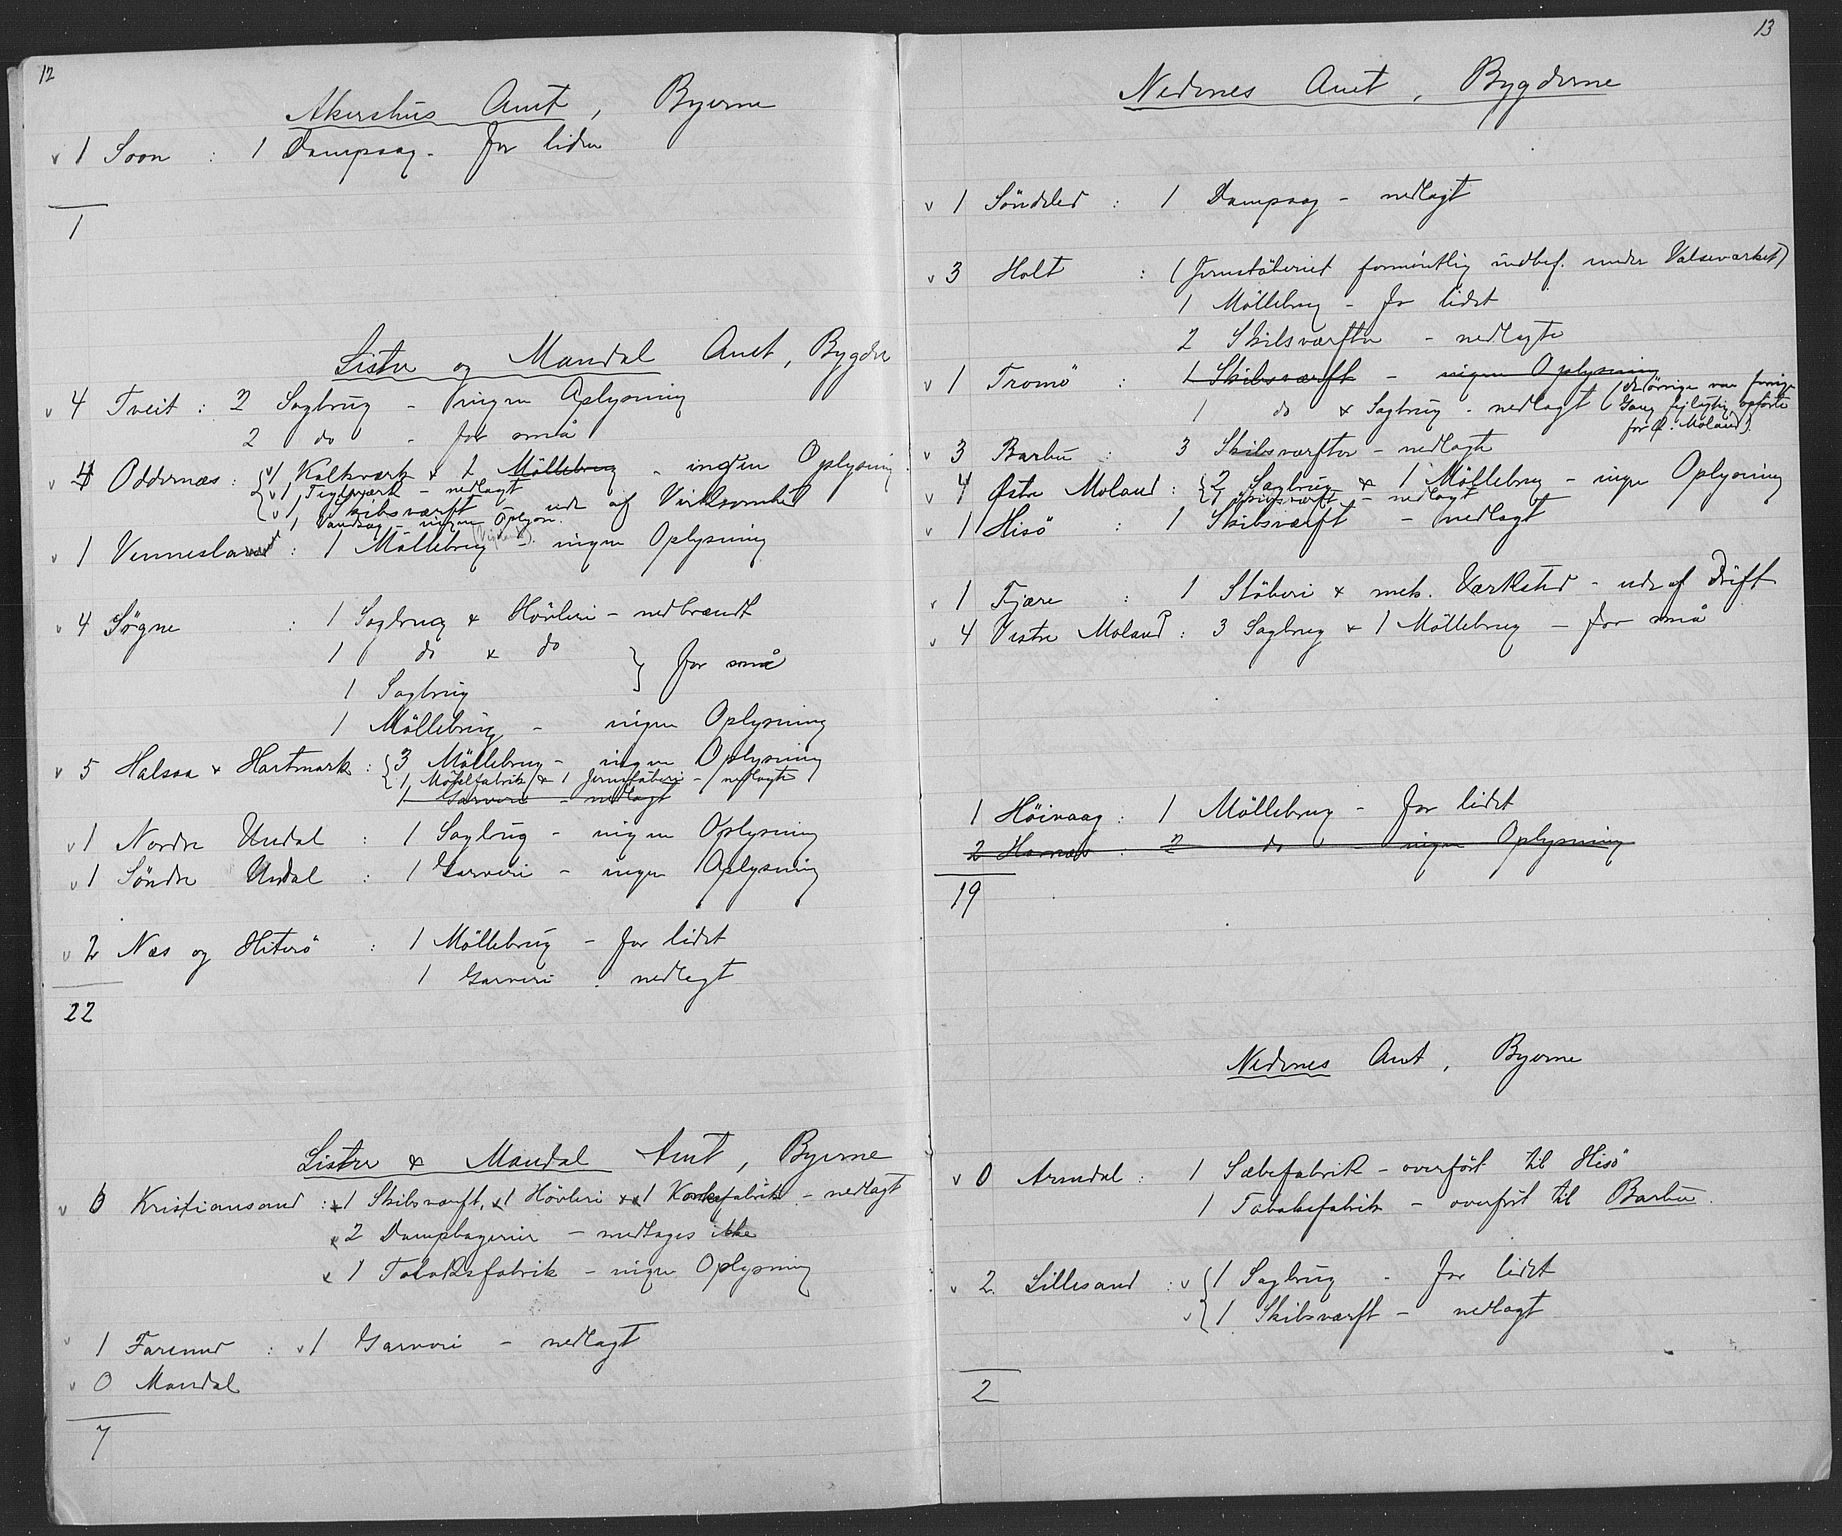 12
Akershus Amt, Byerne
v 1 Soon : 1 Dampsag - for liden
1
Lister og Mandal Amt, Bygder
v 4 Tveit : 2 Sagbrug - ingen Oplysning
2 do - for små
v 4 Oddernæs : v 1 Kalkværk & 2 Möllebrug - ingen Oplysning
v 1 Teglværk - nedlagt
v 1 Skibsværft - ude af Virksomhed
1 Vandsag - ingen Oplysn.
v 1 Vennesland : 1 Möllebrug - ingen Oplysning
v 4 Søgne : 1 Sagbrug & Hövleri - nedbrændt
1 do & do } for små
1 Sagbrug
1 Möllebrug - ingen Oplysning
v 5 Halsaa & Hartmark : { 3 Möllebrug - ingen Oplysning
1 & 1 Jernstöberi - nedlagte
1 Garveri - nedlagt
v 1 Nordre Undal : 1 Sagbrug - ingen Oplysning
v 1 Söndre Undal : 1 Garveri - ingen Oplysning
v 2 Næs og Hiterö : 1 Möllebrug - for lidet
1 Garveri - nedlagt
22
Lister & Mandal Amt, Byerne
v 6 Kristiansand : 1 Skibsværft, 1 Hövleri & 1 Korkefabrik - nedlagt
2 Dampbagerier - medtages ikke
1 Tobaksfabrik - ingen Oplysning
v 1 Farsund : v 1 Garveri - nedlagt
v 0 Mandal
7
13
Nedenes Amt, Bygderne
v 1 Söndeled : 1 Dampsag - nedlagt
v 3 Holt : (Jernstöberiet formentlig indbef. under Valseværket)
1 Möllebrug - for lidet
2 Skibsværfter - nedlagte
v 1 Tromö : 1 Skibsværft - ingen Oplysning
1 do & Sagbrug - nedlagt (de övrige var forrige
Gang fejlagtig opförte
for Ø. Moland)
v 3 Barbu : 3 Skibsværfter - nedlagte
v 4 Østre Moland : { 2 Sagbrug & 1 Möllebrug - ingen Oplysning
1 Skibsværft - nedlagt
v 1 Hisö : 1 Skibsværft - nedlagt
v 1 Fjære : 1 Stöberi & mek. Værksted - ude af Drift
v 4 Vestre Moland : 3 Sagbrug & 1 Möllebrug - for små
1 Höivaag : 1 Möllebrug - for lidet
2 Hornnes : 2 do - ingen Oplysning
19
Nedenes Amt, Byerne
v 0 Arendal : 1 Sæbefabrik - overfört til Hisö
1 Tobaksfabrik - overfört til Barbu.
v 2. Lillesand : v { 1 Sagbrug - for lidet
v { 1 Skibsværft - nedlagt
2